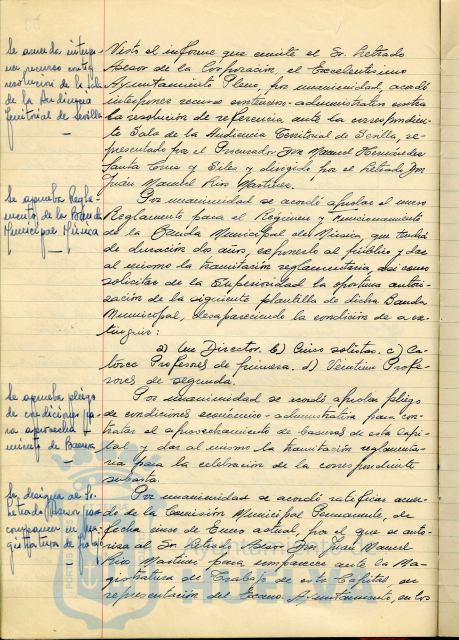 Se acuerda interpo-
ner recurso contra
resolución de la Sala
de la Audiencia
Territorial de Sevilla
Visto el informe que emite el Sr. Letrado
Asesor de la Corporación, el Excelentísimo
Ayuntamiento Pleno, por unanimidad, acordó
interponer recurso contencioso-administrativo contra
la resolución de referencia ante la correspondien-
te Sala de la Audiencia Territorial de Sevilla, re-
presentado por el Procurador Don Manuel Hernández
Santa Cruz y Siles y dirigido por el Letrado Don
Juan Manuel Rios Martinez.
Se aprueba Regla-
mento de la Banda
Municipal Música
Por unanimidad se acordó aprobar el nuevo
Reglamento para el Régimen y Funcionamiento
de la Banda Municipal de Música, que tendrá
de duración dos años, exponerlo al público y dar
al mismo la tramitación reglamentaria, así como
solicitar de la Superioridad la oportuna autori-
zación de la siguiente plantilla de dicha Banda
Municipal, desapareciendo la condición de a ex-
tinguir:
a) Un Director. b) Cinco solistas. c) Ca-
torce Profesores de primera. d) Veintiun Profe-
sores de segunda.
Se aprueba pliego
de condiciones pa-
ra aprovecha-
miento de Basura
Por unanimidad se acordó aprobar pliego
de condiciones económico-administrativas para con-
tratar el aprovechamiento de basuras de esta Capi-
tal y dar al mismo la tramitación reglamenta-
ria para la celebración de la correspondiente
subasta.
Se designa al Sr.
Letrado Asesor para
comparecer en Ma-
gistratura de Trabajo
Por unanimidad se acordó ratificar acuer-
do de la Comisión Municipal Permanente, de
fecha cinco de Enero actual, por el que se auto-
riza al Sr. Letrado Asesor Don Juan Manuel
Rios Martinez para comparecer ante la Ma-
gistratura de Trabajo de esta Capital, en
representación del Excmo. Ayuntamiento, en los